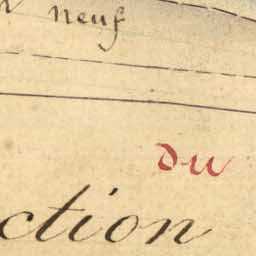 neuf
du
ction